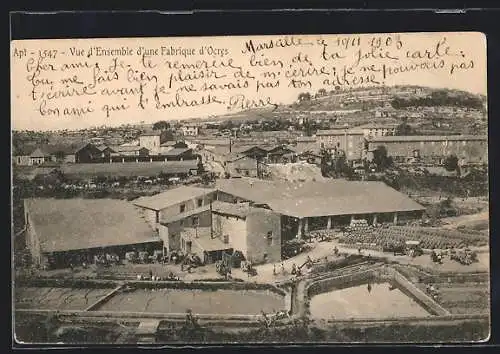 Apt - 1547 - Vue d'Ensemble d'une Fabrique d'Ocres
Marseille le 19 11 1903
Cher ami, Je te remercie bien de ta jolie carte,
tu me fais bien plaisir de m'ecrire. Je ne pouvais pas
t'ecrire avant je ne savais pas ton adresse
ton ami qui t'embrasse, Pierre